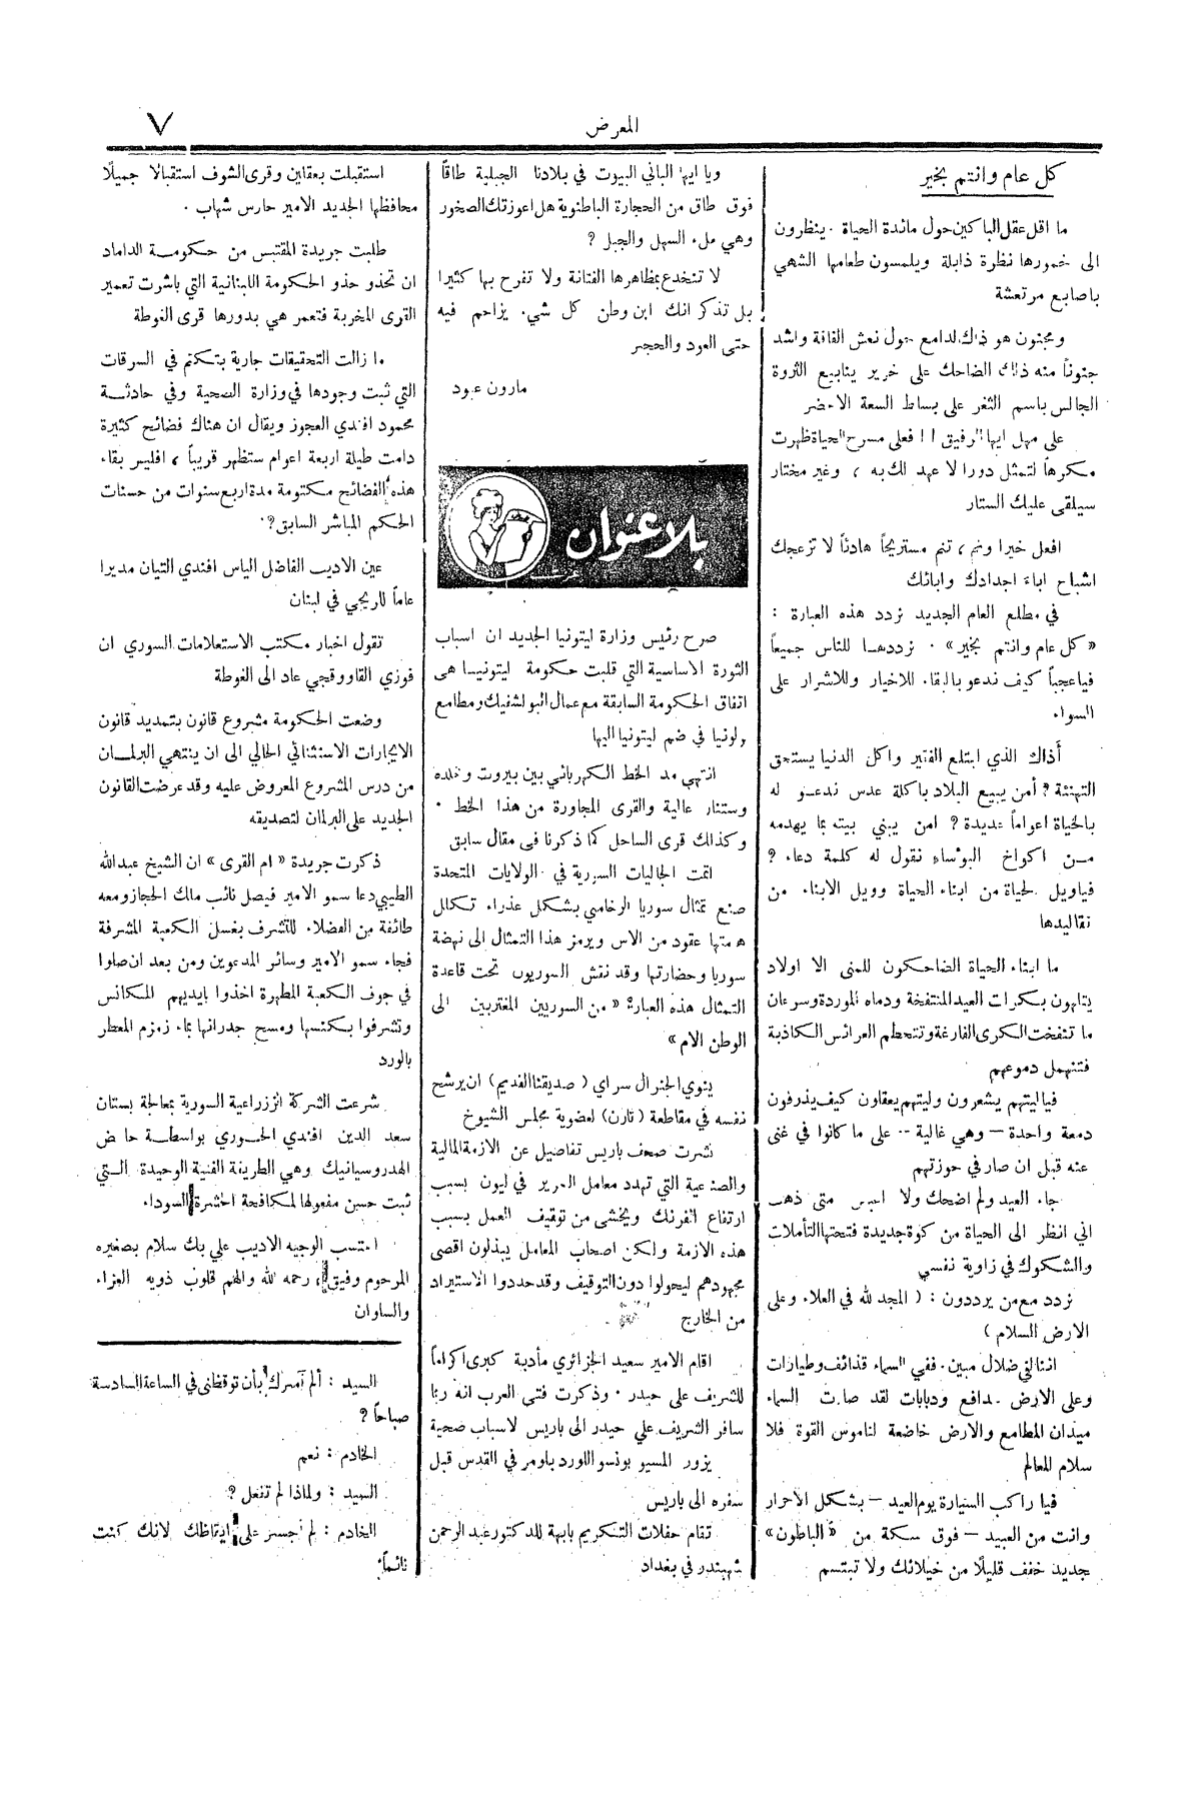 المعرض
٧
كل عام وانتم بخير
ما اقل عقل الباكين حول مائدة الحياة . ينظرون
الى خمورها نظرة ذابلة ويلمسون طعامها الشهي
باصابع مرتعشة
ومجنون هو ذاك الدامع حول نعش الفاقة واشد
جنوناً منه ذاك الضاحك على خرير ينابيع الثروة
الجالس باسم الثغر على بساط السعة الاخضر
على مهل ايها الرفيق !! فعلى مسرح الحياة ظهرت
مكرهاً لتمثل دورا لا عهد لك به ، وغير مختار
سيلقى عليك الستار
افعل خيرا ونم ، تنم مستريحاً هادئاً لا تزعجك
اشباح اباء اجدادك وابائك
في مطلع العام الجديد نردد هذه العبارة :
« كل عام وانتم بخير » . نرددهـا للناس جميعاً
فياعجباً كيف ندعو بالبقاء للاخيار وللاشرار على
السواء
أذاك الذي ابتلع الفقير واكل الدنيا يستحق
التهنئة ? أمن يبيع البلاد باكلة عدس ندعـو له
بالحياة اعواماً عديدة ? امن يبني بيته بما يهدمه
مـن اكواخ البؤساء نقول له كلمة دعاء ?
فياويل الحياة من ابناء الحياة وويل الابناء من
تقاليدها
ما ابناء الحياة الضاحكون للمنى الا اولاد
يتلهون بكرات العيد المنتفخة ودماه الموردة وسرعان
ما تنفخت الكرى الفارغة وتتحطم العرائس الكاذبة
فتنهمل دموعهم
فياليتهم يشعرون وليتهم يعقلون كيف يذرفون
دمعة واحدة — وهي غالية -- على ما كانوا في غنى
عنه قبل ان صار في حوزتهم
جاء العيد ولم اضحك ولا متى ذهب
اني انظر الى الحياة من كوة جديدة فتحتها التأملات
والشكوك في زاوية نفسي
نردد مع من يرددون : ( المجد لله في العلاء وعلى
الارض السلام )
اننا لفي ضلال مبين . ففي السماء قذائف وطيارات
وعلى الارض مدافع ودبابات لقد صارت السماء
ميدان المطامع والارض خاضعة لناموس القوة فلا
سلام للعالم
فيا راكب السيارة يوم العيد — بشكل الاحرار
وانت من العبيد — فوق سكة من « الباطون »
جديد خفف قليلاً من خيلائك ولا تبتسم
ويا ايها الباني البيوت في بلادنا الجبلية طاقاً
فوق طاق من الحجارة الباطنوية هل اعوزتك الصخور
وهي ملء السهل والجبل ?
لا تنخدع بمظاهرها الفتانة ولا تفرح بها كثيرا
بل تذكر انك ابن وطن كل شيء يزاحم فيه
حتى العود والحجر
مارون عبود
بلا عنوان
صرح رئيس وزارة ليتونيا الجديد ان اسباب
الثورة الاساسية التي قلبت حكومة ليتونيـا هى
اتفاق الحكومة السابقة مع عمال البولشفيك ومطامع
بولونيا في ضم ليتونيا اليها
انتهى مد الخط الكهربائي بين بيروت وخلده
وستنار عالية والقرى المجاورة من هذا الخط .
وكذلك قرى الساحل كما ذكرنا في مقال سابق
اتمت الجاليات السورية في الولايات المتحدة
صنع تمثال سوريا الرخامي بشكل عذراء تكلل
هامتها عقود من الاس ويرمز هذا التمثال الى نهضة
سوريا وحضارتها وقد نقش السوريون تحت قاعدة
التمثال هذه العبارة « من السوريين المغتربين الى
الوطن الام »
ينوي الجنرال سراي ( صديقنا القديم ) ان يرشح
نفسه في مقاطعة (تارن) لعضوية مجلس الشيوخ
نشرت صحف باريس تفاصيل عن الازمة المالية
والصناعية التي تهدد معامل الحرير في ليون بسبب
ارتفاع الفرنك ويخشى من توقيف العمل بسبب
هذه الازمة ولكن اصحاب المعامل يبذلون اقصى
مجهودهم ليحولوا دون التوقيف وقد حددوا الاستيراد
من الخارج
اقام الامير سعيد الجزائري مأدبة كبرى اكراماً
للشريف على حيدر . وذكرت فتى العرب انه ربما
سافر الشريف علي حيدر الى باريس لاسباب صحية
يزور المسيو بونسو اللورد باومر في القدس قبل
سفره الى باريس
تقام حفلات التكريم بابهة للدكتور عبد الرحمن
شهبندر في بغداد
استقبلت بعقلين وقرى الشوف استقبالا جميلاً
محافظها الجديد الامير حارس شهاب .
طلبت جريدة المقتبس من حكومـة الداماد
ان تحذو حذو الحكومة اللبنانية التي باشرت تعمير
القرى المخربة فتعمر هي بدورها قرى الغوطة
ما زالت التحقيقات جارية بتكتم في السرقات
التي ثبت وجودها في وزارة الصحية وفي حادثـة
محمود افندي العجوز ويقال ان هناك فضائح كثيرة
دامت طيلة اربعة اعوام ستظهر قريباً ، افليس بقاء
هذه الفضائح مكتومة مدة اربع سنوات من حسنات
الحكم المباشر السابق ؟
عين الاديب الفاضل الياس افندي التيان مديرا
عاماً للريجي في لبنان
تقول اخبار مكتب الاستعلامات السوري ان
فوزي القاووقجي عاد الى الغوطة
وضعت الحكومة مشروع قانون بتمديد قانون
الايجارات الاستثنائي الحالي الى ان ينتهي البرلمـان
من درس المشروع المعروض عليه وقد عرضت القانون
الجديد على البرلمان لتصديقه
ذكرت جريدة « ام القرى » ان الشيخ عبدالله
الطيبي دعا سمو الامير فيصل نائب مالك الحجاز ومعه
طائفة من الفضلاء للتشرف بغسل الكعبة المشرفة
فجاء سمو الامير وسائر المدعوين ومن بعد ان صلوا
في جوف الكعبة المطهرة اخذوا بايديهم المكانس
وتشرفوا بكنسها ومسح جدرانها بماء زمزم المعطر
بالورد
شرعت الشركة الزراعية السورية بمعالجة بستان
سعد الدين افندي الخـوري بواسطـة حامض
الهدروسيانيك وهي الطريقة الفنية الوحيدة التـي
ثبت حسن مفعولها لمكافحة الحشرة السوداء
احتسب الوجيه الاديب علي بك سلام بصغيره
المرحوم وفيق ، رحمه الله والهم قلوب ذويه العزاء
والسلوان
السيد : ألم آمرك بأن توقظني في الساعة السادسة
صباحاً ?
الخادم : نعم
السيد : ولماذا لم تفعل ?
الخادم : لم أجسر على ايقاظك لانك كنت
نائماً